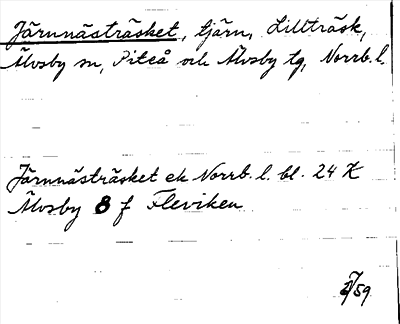 Järnnästräsket, tjärn, Lillträsk,
Älvsby sn, Piteå och Älvsby tg, Norrb. l.
Järnnästräsket ek Norrb. l. bl. 24 K
Älvsby 8 f Fleviken
2/7 59